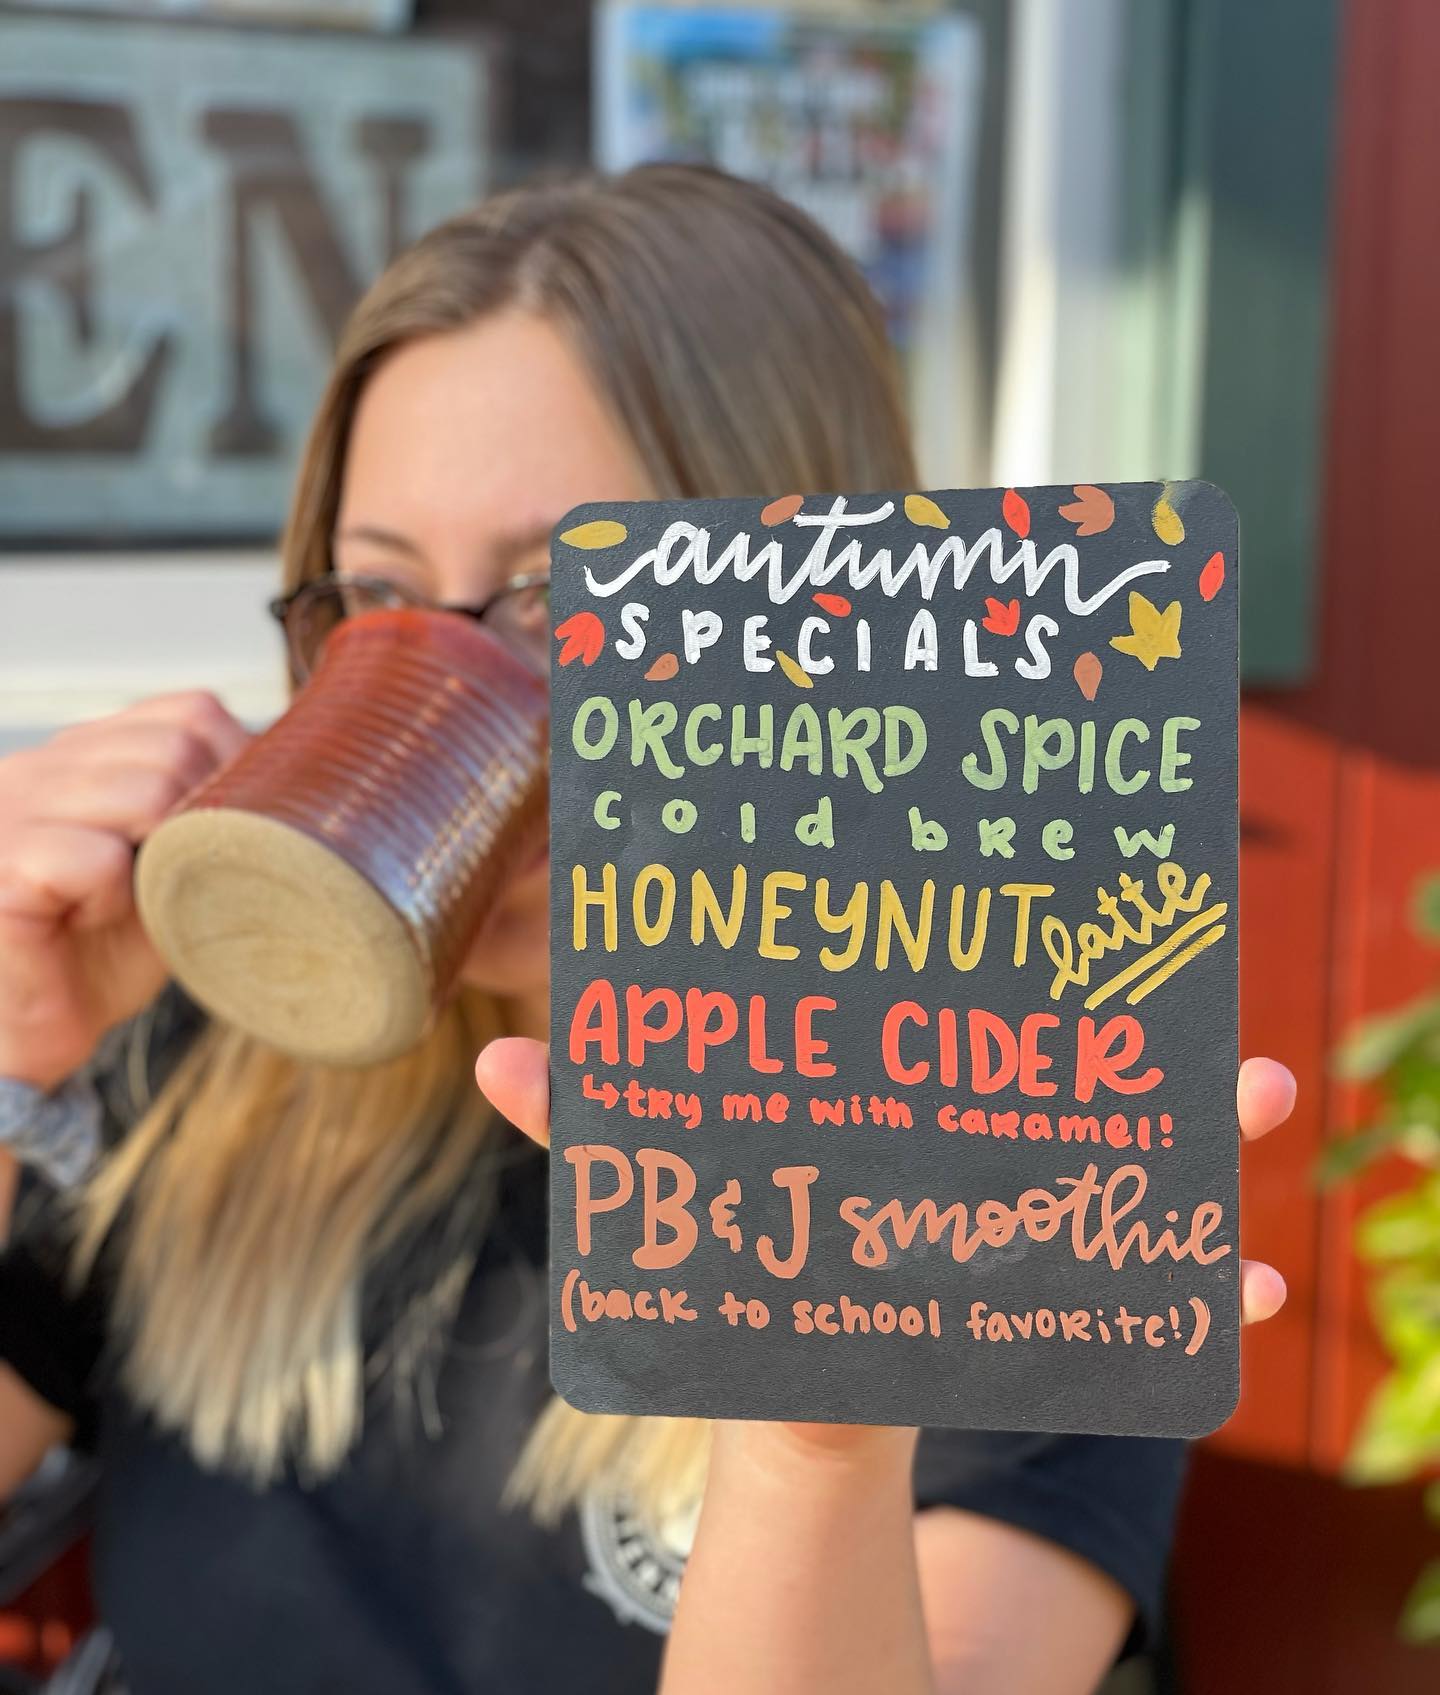 EN
autumn
SPECIALS
ORCHARD SPICE
cold brew
HONEYNUT latte
APPLE CIDER
↳try me with caramel!
PB&J smoothie
(back to school favorite!)